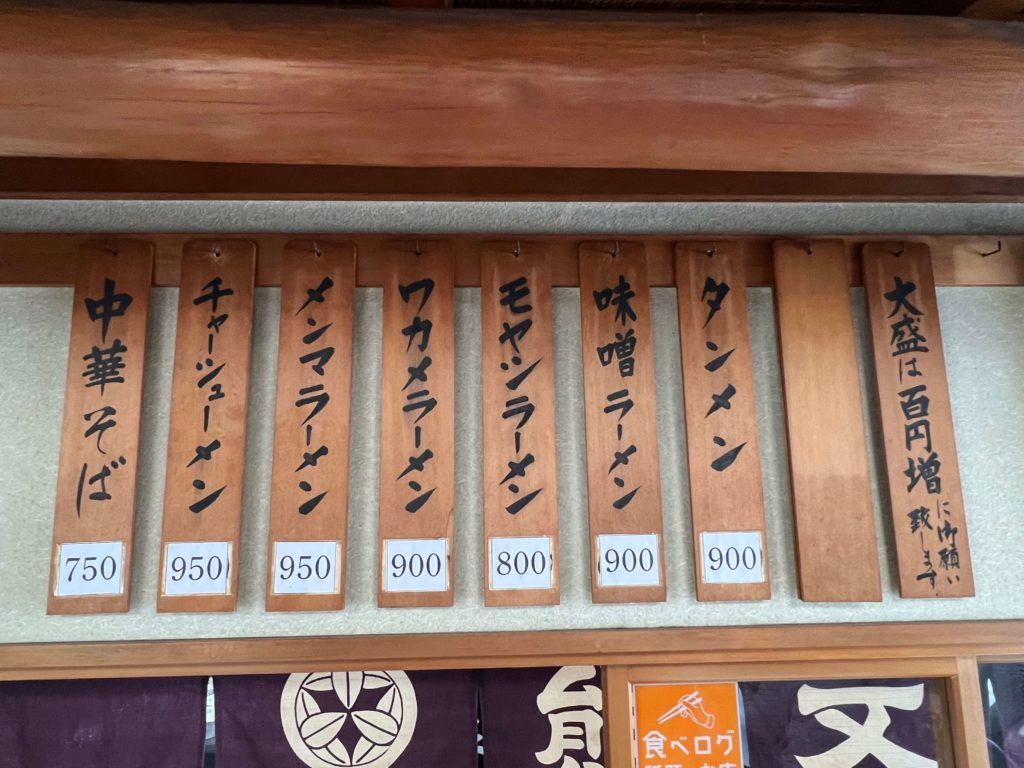 中華そば
750
チャーシューメン
950
メンマラーメン
950
ワカメラーメン
900
モヤシラーメン
800
味噌ラーメン
900
タンメン
900
大盛は百円増
に御願い
致します
食べログ